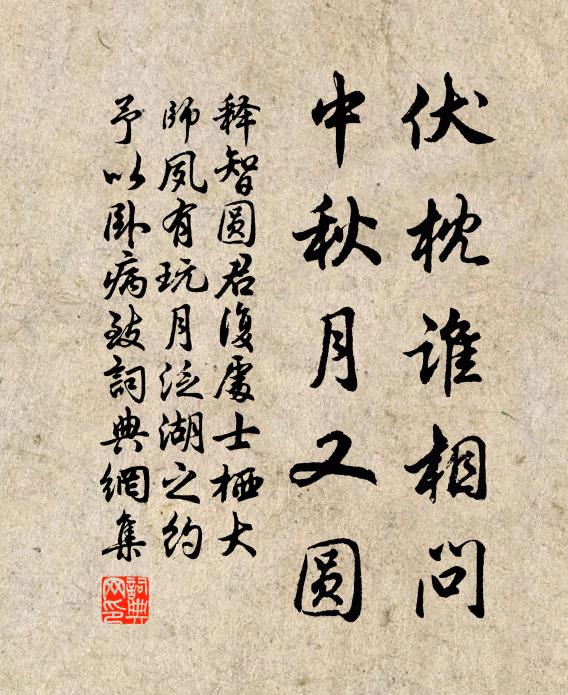 伏枕谁相问
中秋月又圆
释智圆君復處士栖大
師夙有玩月泛湖之约
予以卧病致詞典網集
詞典网印